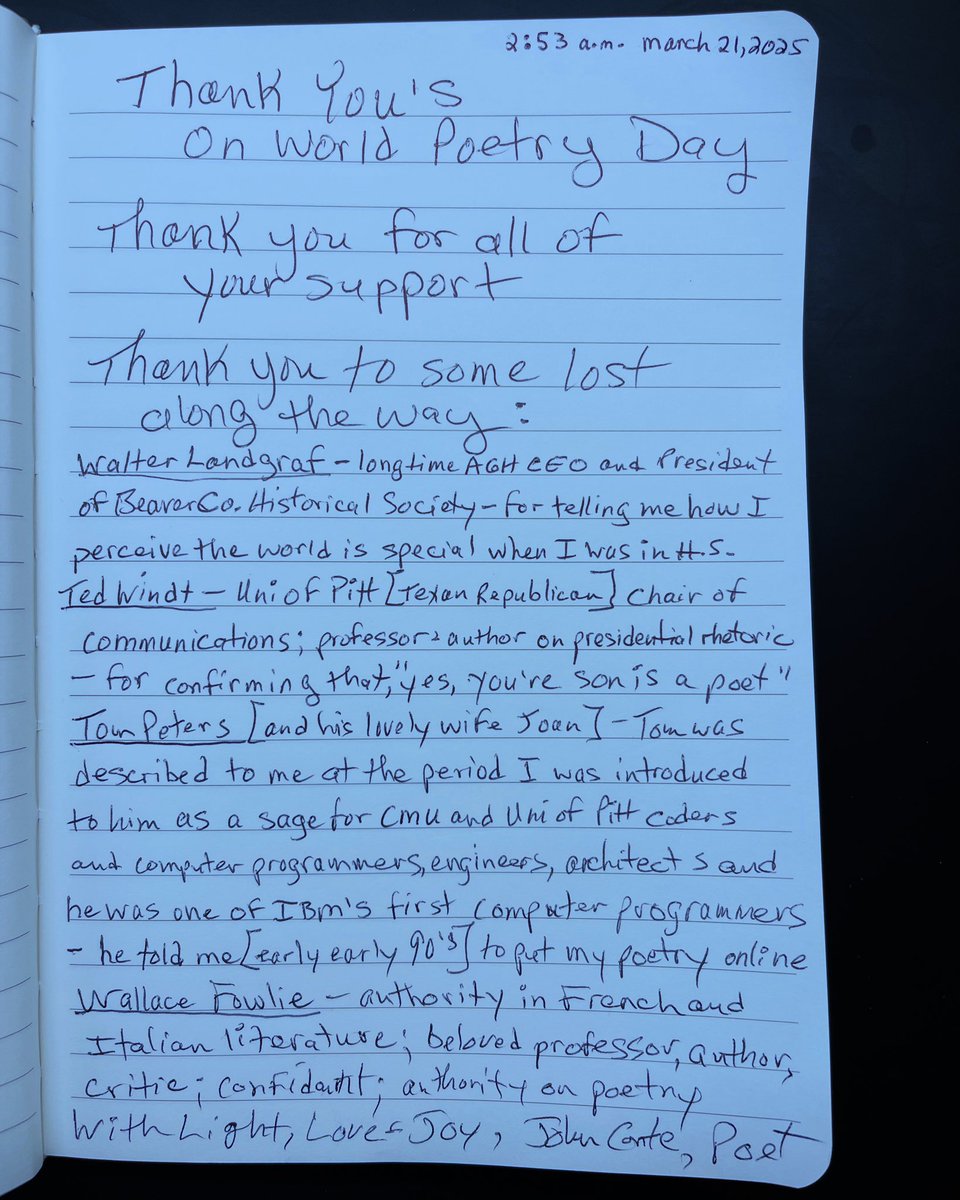 2:53 a.m. march 21, 2025
Thank You's
On World Poetry Day
Thank you for all of
your support
Thank you to some lost
along the way:
Walter Landgraf - longtime AGH CEO and President
of Beaver Co. Historical Society - for telling me how I
perceive the world is special when I was in H.S.
Ted Windt - Uni of Pitt [Texan Republican] Chair of
Communications; professor & author on presidential rhetoric
- for confirming that, "yes, you're son is a poet"
Tom Peters [and his lovely wife Joan] - Tom was
described to me at the period I was introduced
to him as a sage for CMU and Uni of Pitt coders
and computer programmers, engineers, architects and
he was one of IBM's first computer programmers
- he told me [early early 90's] to put my poetry online
Wallace Fowlie - authority in French and
Italian literature; beloved professor, author,
critic; confidant; authority on poetry
With Light, Love & Joy, John Conte, Poet